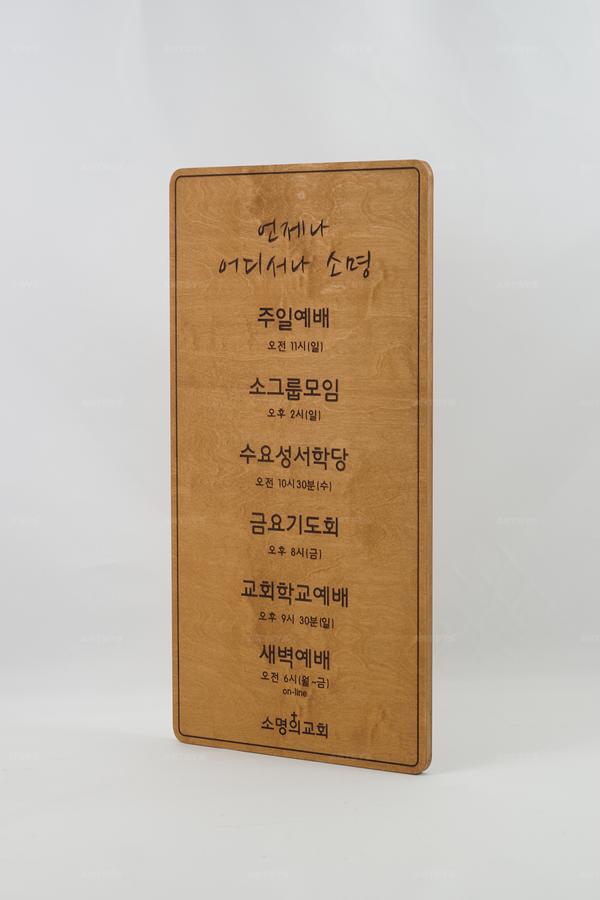 언제나
어디서나 소명
주일예배
오전 11시(일)
소그룹모임
오후 2시(일)
수요성서학당
오전 10시30분(수)
금요기도회
오후 8시(금)
교회학교예배
오후 9시 30분(일)
새벽예배
오전 6시(월~금)
on-line
소명의교회